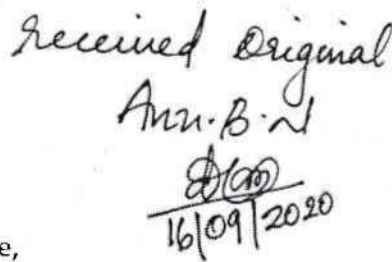 Received Original
Ann.B.N
16/09/2020
e,